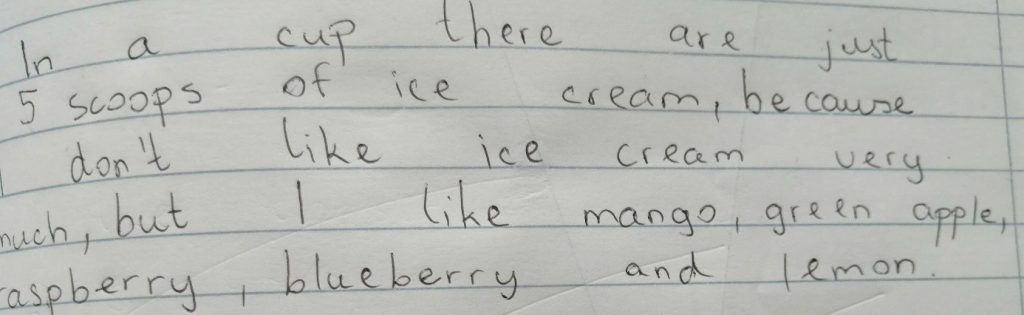 In a cup there are just
5 scoops of ice cream, because
I don't like ice cream very
much, but I like mango, green apple,
raspberry, blueberry and lemon.